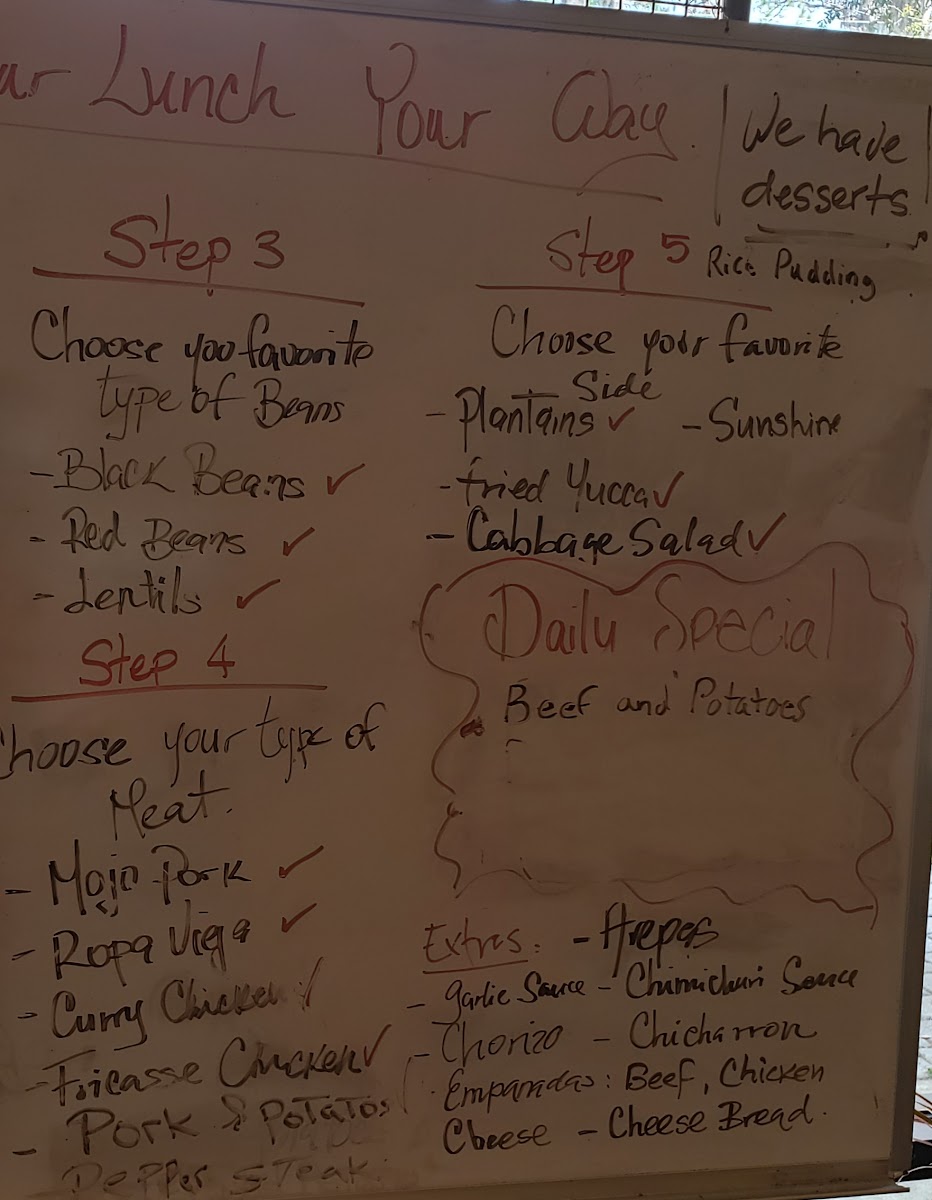 ur Lunch Your Way.
We have
desserts
Rice Pudding
Step 3
Choose you favorite
type of Beans
- Black Beans ✓
- Red Beans ✓
- Lentils ✓
Step 4
Choose your type of
Meat.
- Mojo Pork ✓
- Ropa Vieja ✓
- Curry Chicken ✓
- Fricasse Chicken ✓
- Pork & Potatos
Pepper steak.
Step 5
Choose your favorite
Side
- Plantains ✓ - Sunshine
- fried Yucca ✓
- Cabbage Salad ✓
Daily Special
Beef and Potatoes
-
Extras: - Arepas
- garlic Sauce - Chimichuri Sauce
- Chorizo - Chicharron
Empanadas: Beef, Chicken
Cheese - Cheese Bread.